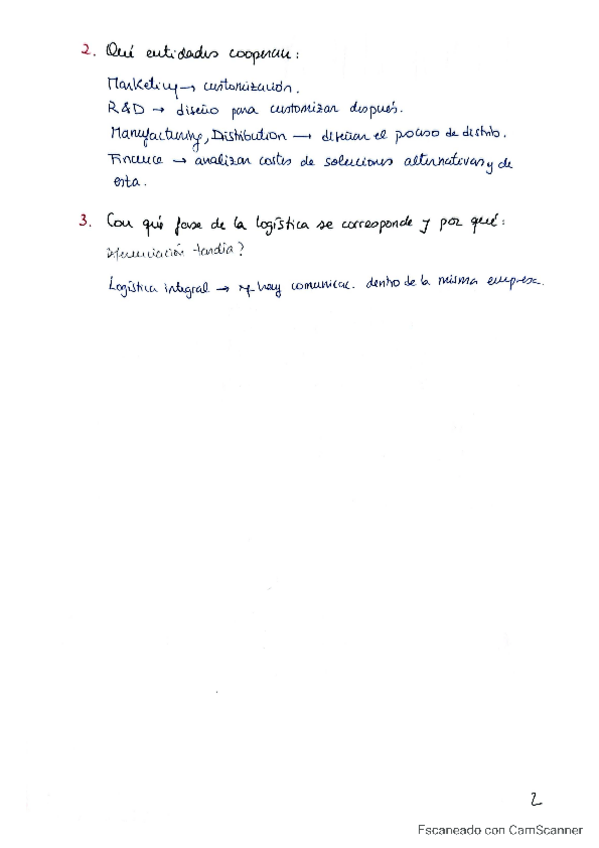 2. Qué entidades cooperan:
Marketing → customización.
R&D → diseño para customizar después.
Manufacturing, Distribution → diseñar el proceso de distrib.
Finance → analizar costes de soluciones alternativas y de
esta.
3. Con qué fase de la logística se corresponde y por qué:
Diferenciación tardía?
Logística integral → hay comunicac. dentro de la misma empresa.
2
Escaneado con CamScanner